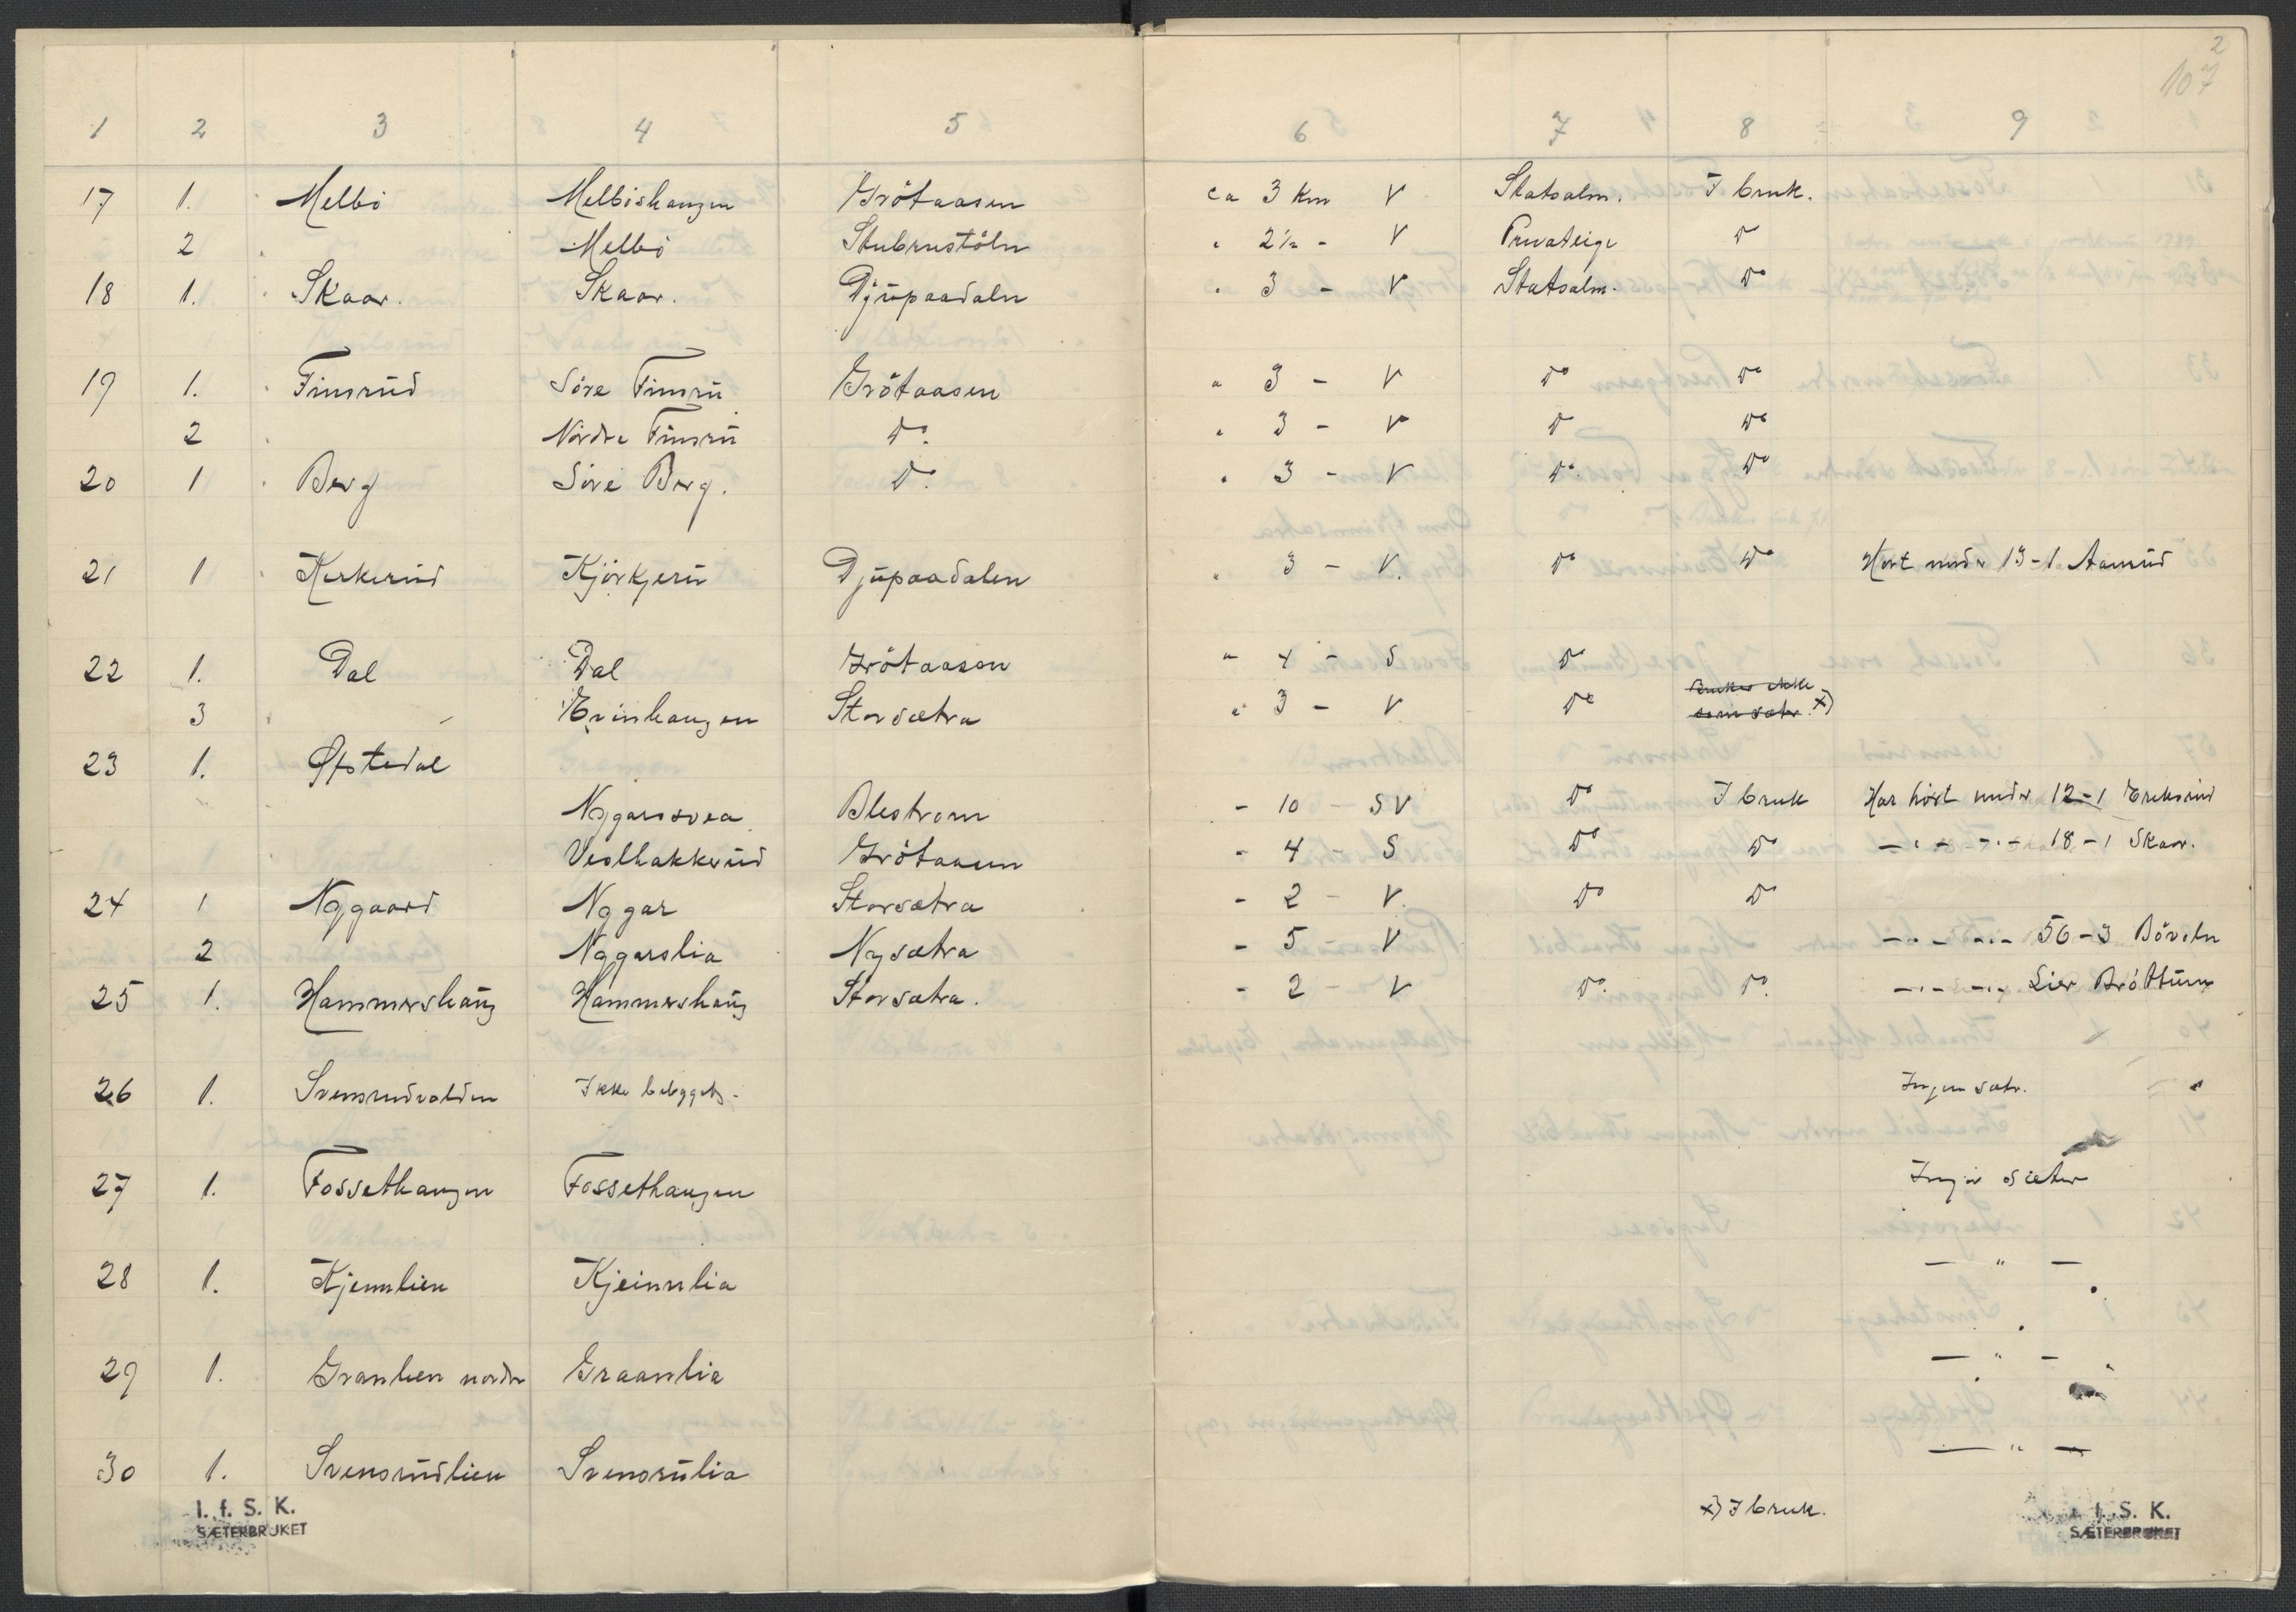 2
107
1 2 3 4 5 6 7 8 9
17 1. Melbö Melböshaugen Grötaasen ca 3 Km V Statsalm. I bruk.
2 Melbö Stubrustöln " 2½ - V Privateige Do
18 1. Skaar. Skaar. Djüpaadaln " 3 - V Statsalm. Do
19 1. Finsrüd Söre Finsrü Grötaasen " 3 - V Do Do
2 Nördre Finsrü Do. " 3 - V Do Do
20 1 Berg Söre Berg. Do. " 3 - V Do. Do
21 1 Kirkerüd Kjörkjerü Djüpaadalen " 3 - V. Do Do Hört under 13-1 Aamrüd
22 1. Dal Dal Grötaasen " 4 - S Do
3 Evinhaugen Storsætra " 3 - V Do Brukes ikke
som sæter. x)
23 1. Øfstedal
Nygarssvea Blestrom - 10 - SV Do I bruk Har hört under 12-1 Ereksrud
Veslhakkerüd Grötaasen - 4 - S Do Do -"- -"- 18-1 Skaar.
24 1 Nygaard Nygar Storsætra - 2 - V. Do Do
2 Nygarslia Nysætra - 5 - V -"- -"- 56-3 Böveln
25 1. Hammershaüg Hammershaüg Storsætra. - 2 - V Do. Do. -"- -"- Lier Bröttum
26 1. Svensrudvolden Ikke bebygget. Ingen sæter.
27 1. Fossethaugen Fossethaugen Ingen sæter
28 1. Kjernlien Kjeinnlia — " —
29 1. Granlien nordre Graanlia — " —
30 1. Svensrüdlien Svensrülia — " —
x) I bruk.
I. f. S. K.
SÆTERBRUKET
I. f. S. K.
SÆTERBRUKET